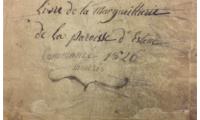 Livre de la Marguillerie
de la paroisse d'
Commancé 1826